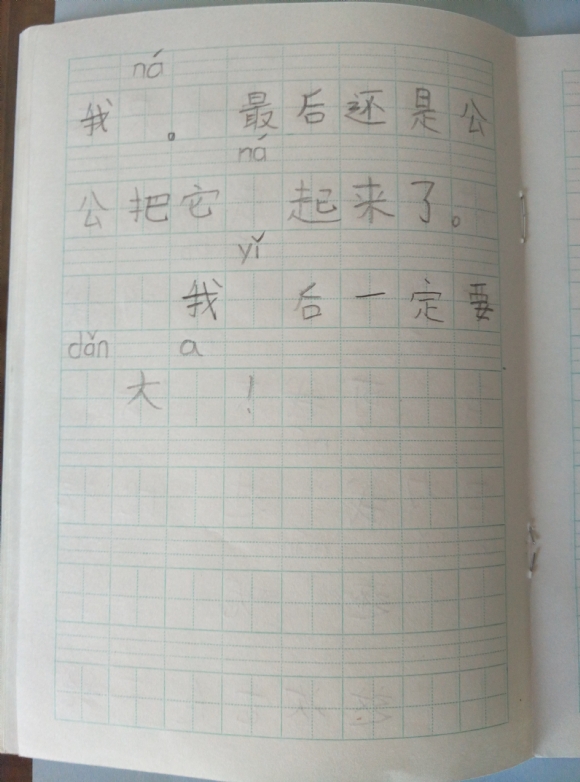 ná
我 。最后还是公
ná
公把它 起来了。
yǐ
我 后一定要
dǎn a
大 !